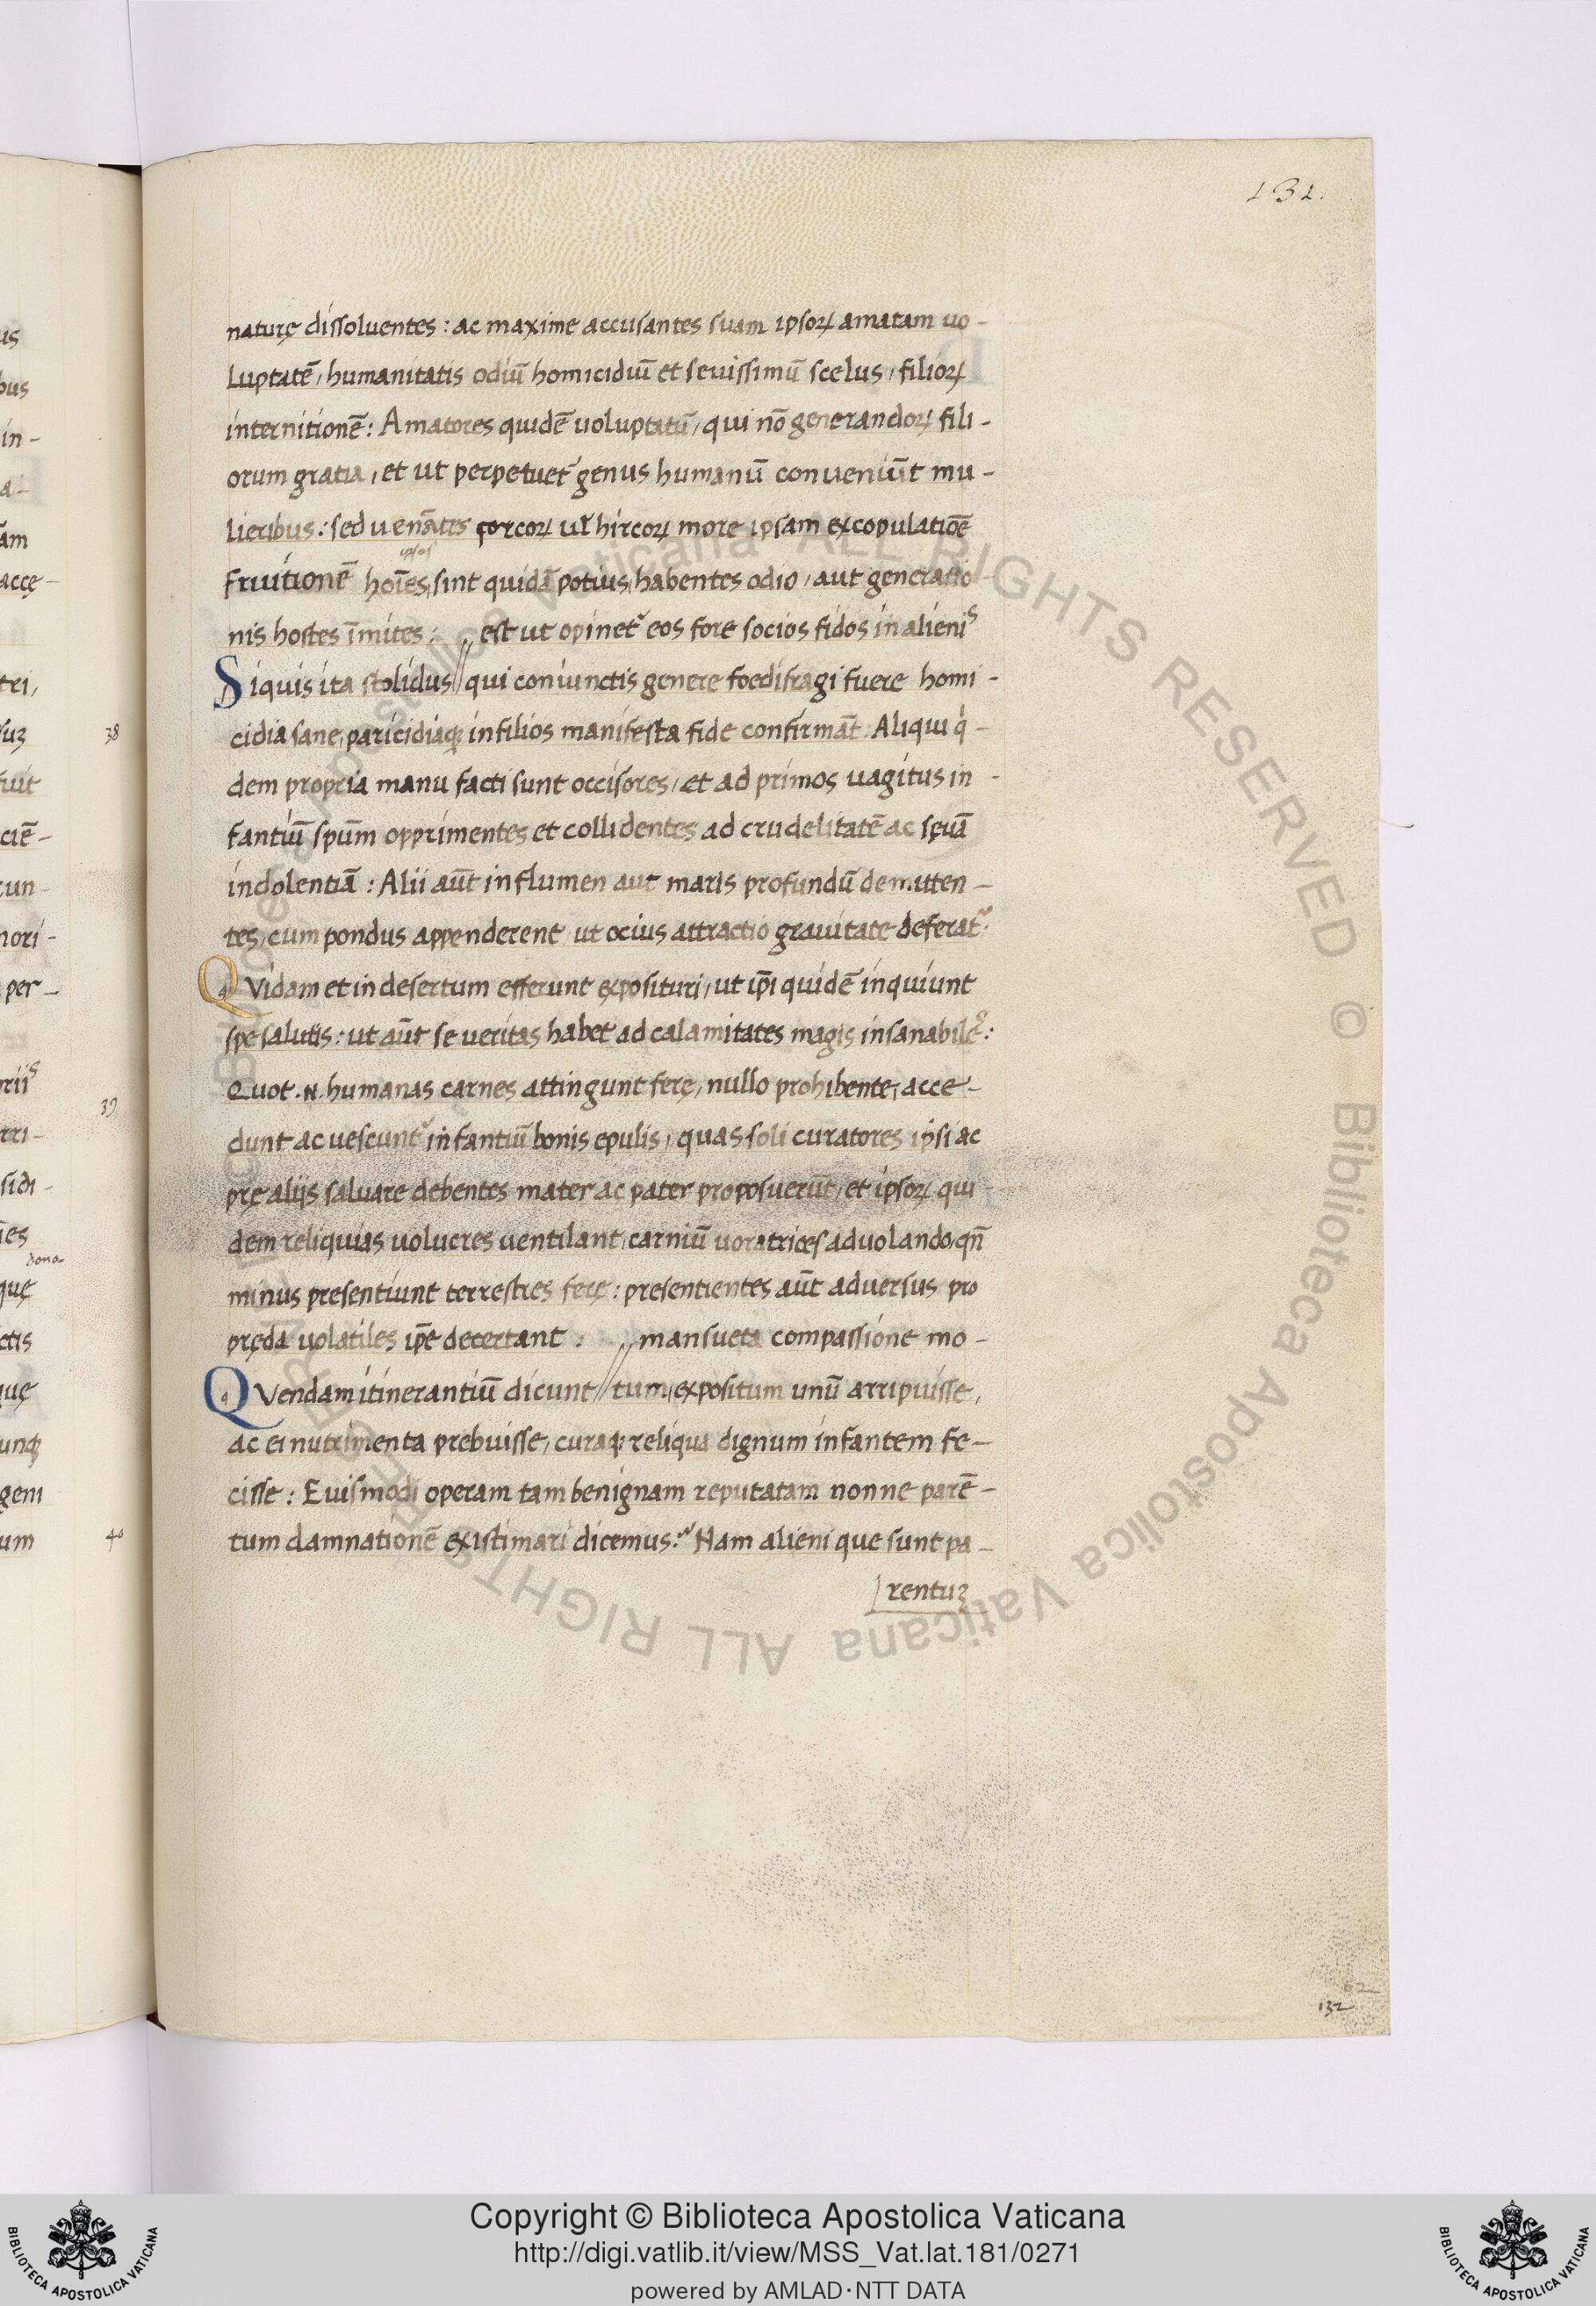 131.
naturę dissoluentes : ac maxime accusantes suam ipsoꝝ amatam uo-
Luptatē, humanitatis odiū homicidiū et seuissimū scelus, filioꝝ
internitionē : Amatores quidē uoluptatū, qui nō generandoꝝ fili-
orum gratia, et ut perpetuet᷑ genus humanū conueniūt mu-
lieribus : sed uenātes porcoꝝ ul̓ hircoꝝ more ipsam excopulatiōe
ipsos
fruitionē hoīes, sint quidā potius, habentes odio, aut generatio-
nis hostes īmites : // est ut opinet᷑ eos fore socios fidos in alienis
Siquis ita stolidus // qui coniunctis genere foedifragi fuere homi-
cidia sane, paricidiaqꝫ in filios manifesta fide confirmāt. Aliqui q̇-
dem propria manu facti sunt occisores, et ad primos uagitus in-
fantiū spūm opprimentes et collidentes ad crudelitatē ac sęuā
indolentiā : Alii aūt in flumen aut maris profundū demitten-
tes, cum pondus appenderent ut ocius attractio grauitate deferat᷑.
QVidam et in desertum efferunt exposituri, ut ipī quidē inquiunt
spe salutis : ut aūt se ueritas habet ad calamitates magis insanabiles :
Quot .N. humanas carnes attingunt ferę, nullo prohibente, acce-
dunt ac uescunt᷑ infantiū bonis epulis, quas soli curatores ipsi ac
prę alijs saluare debentes mater ac pater proposuerūt, et ipsoꝝ qui
dem reliquias uolucres uentilant, carniū uoratrices aduolando, qn̄
minus presentiunt terrestres ferę : presentientes aūt aduersus pro
pręda uolatiles ipe decertant : // mansueta compassione mo-
QVendam itinerantiū dicunt // tum, expositum unū arripuisse,
ac ei nutrimenta prebuisse, curaqꝫ reliqua dignum infantem fe-
cisse : Euismodi operam tam benignam reputatam nonne parē-
tum damnationē existimari dicemus? Nam alieni que sunt pa-
rentuꝫ
132
38
39
40
Copyright © Biblioteca Apostolica Vaticana
http://digi.vatlib.it/view/MSS_Vat.lat.181/0271
powered by AMLAD·NTT DATA